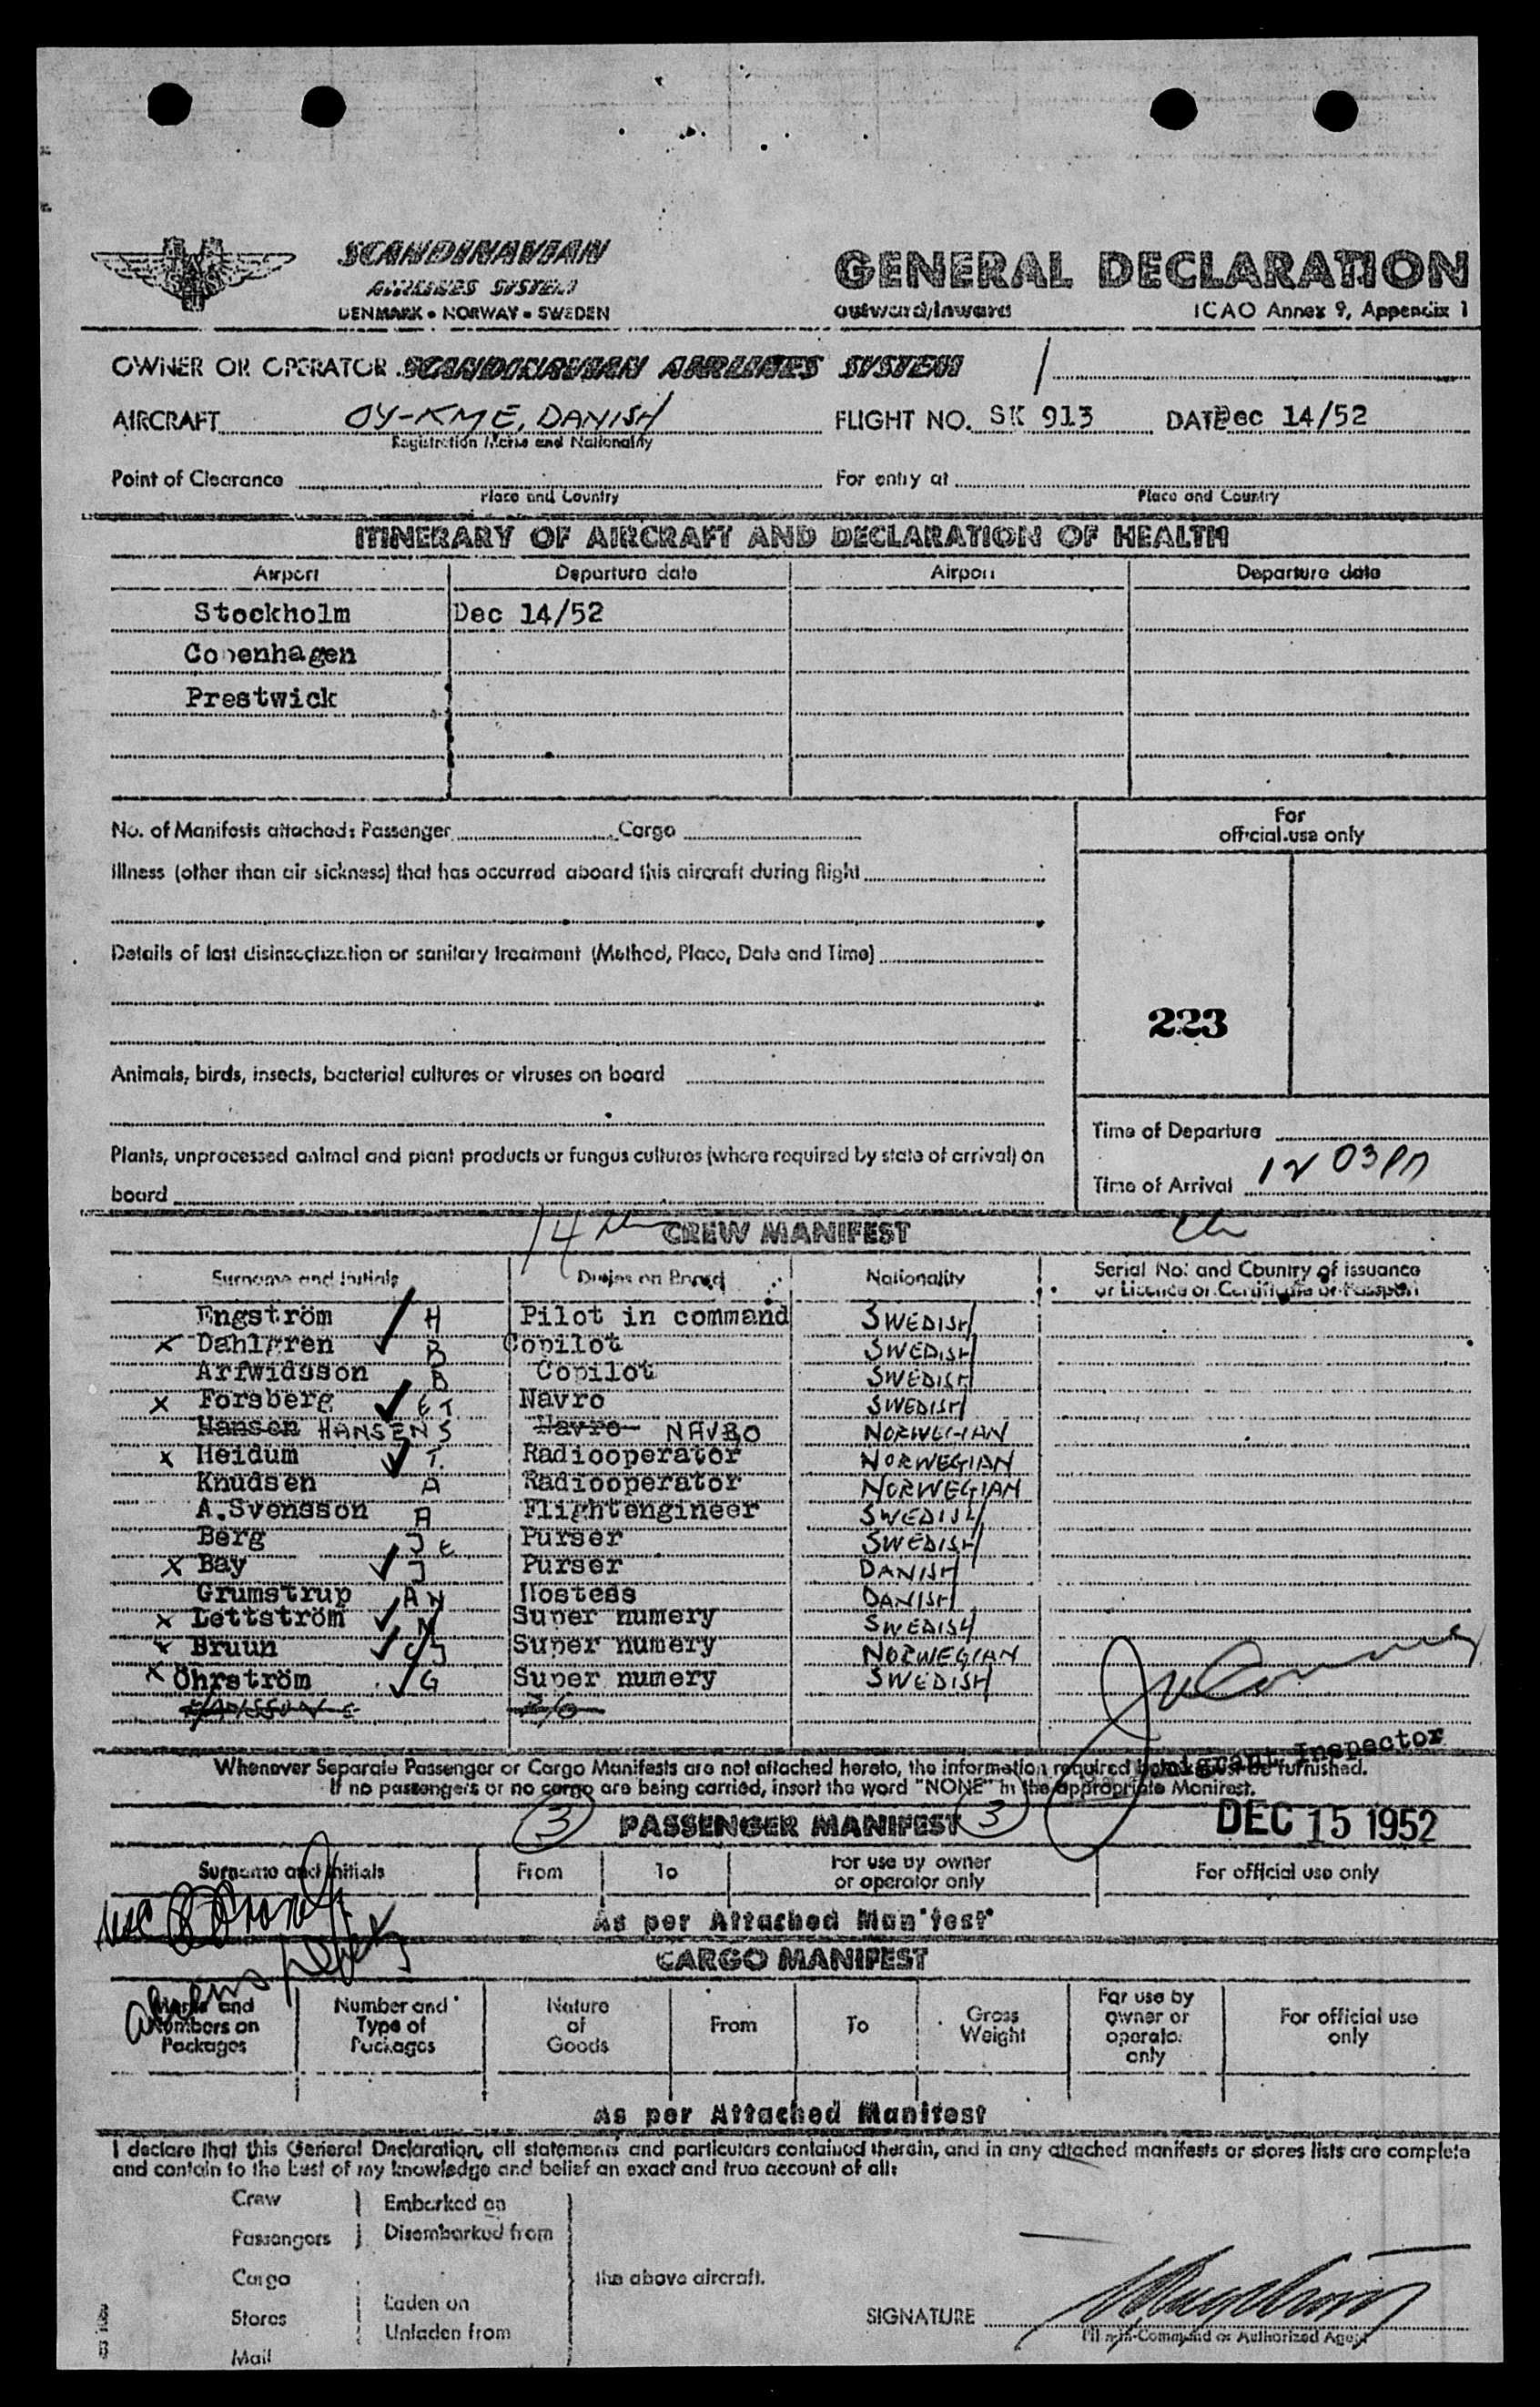 SCANDINAVIAN
AIRLINES SYSTEM
DENMARK • NORWAY • SWEDEN
GENERAL DECLARATION
outward/inward
ICAO Annex 9, Appendix 1
OWNER OR OPERATOR SCANDINAVIAN AIRLINES SYSTEM
AIRCRAFT OY-KME, DANISH FLIGHT NO. SK 913 DATE Dec 14/52
Registration Marks and Nationality
Point of Clearance For entry at
Place and Country Place and Country
ITINERARY OF AIRCRAFT AND DECLARATION OF HEALTH
Airport Departure date Airport Departure date
Stockholm Dec 14/52
Copenhagen
Prestwick
No. of Manifests attached: Passenger Cargo
For
official use only
Illness (other than air sickness) that has occurred aboard this aircraft during flight
Details of last disinsectization or sanitary treatment (Method, Place, Date and Time)
223
Animals, birds, insects, bacterial cultures or viruses on board
Time of Departure
Plants, unprocessed animal and plant products or fungus cultures (where required by state of arrival) on
board
Time of Arrival 12 03 PM
14
CREW MANIFEST
Surname and Initials Duties on Board Nationality Serial No. and Country of issuance
or Licence or Certificate or Passport
Engström H Pilot in command SWEDISH
x Dahlgren B Copilot SWEDISH
Arfwidsson B Copilot SWEDISH
x Forsberg ET Navro SWEDISH
Hansen HANSEN S Navro NAVRO NORWEGIAN
x Heidum T. Radiooperator NORWEGIAN
Knudsen A Radiooperator NORWEGIAN
A.Svensson A Flightengineer SWEDISH
Berg J E Purser SWEDISH
x Bay J Purser DANISH
Grumstrup A N Hostess DANISH
x Lettström N Super numery SWEDISH
x Bruun C J Super numery NORWEGIAN
x Öhrström G Super numery SWEDISH
Immigrant Inspector
Whenever Separate Passenger or Cargo Manifests are not attached hereto, the information required below must be furnished.
If no passengers or no cargo are being carried, insert the word "NONE" in the appropriate Manifest.
3 PASSENGER MANIFEST 3
DEC 15 1952
Surname and Initials From To For use by owner
or operator only For official use only
As per Attached Manifest
CARGO MANIFEST
Marks and
Numbers on
Packages Number and
Type of
Packages Nature
of
Goods From To Gross
Weight For use by
owner or
operator
only For official use
only
As per Attached Manifest
I declare that this General Declaration, all statements and particulars contained therein, and in any attached manifests or stores lists are complete
and contain to the best of my knowledge and belief an exact and true account of all:
Crew Embarked on
Passengers Disembarked from
Cargo the above aircraft.
Stores Laden on
Unladen from
Mail
SIGNATURE
Pilot-in-Command or Authorized Agent